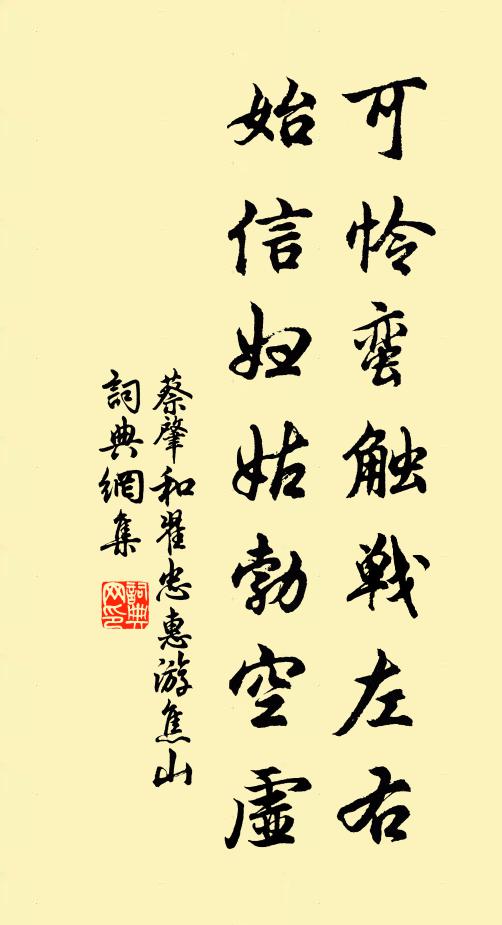 可怜蛮触战左右
始信妇姑勃空虚
蔡肇和翟忠惠游焦山
詞典網集
詞典
网印